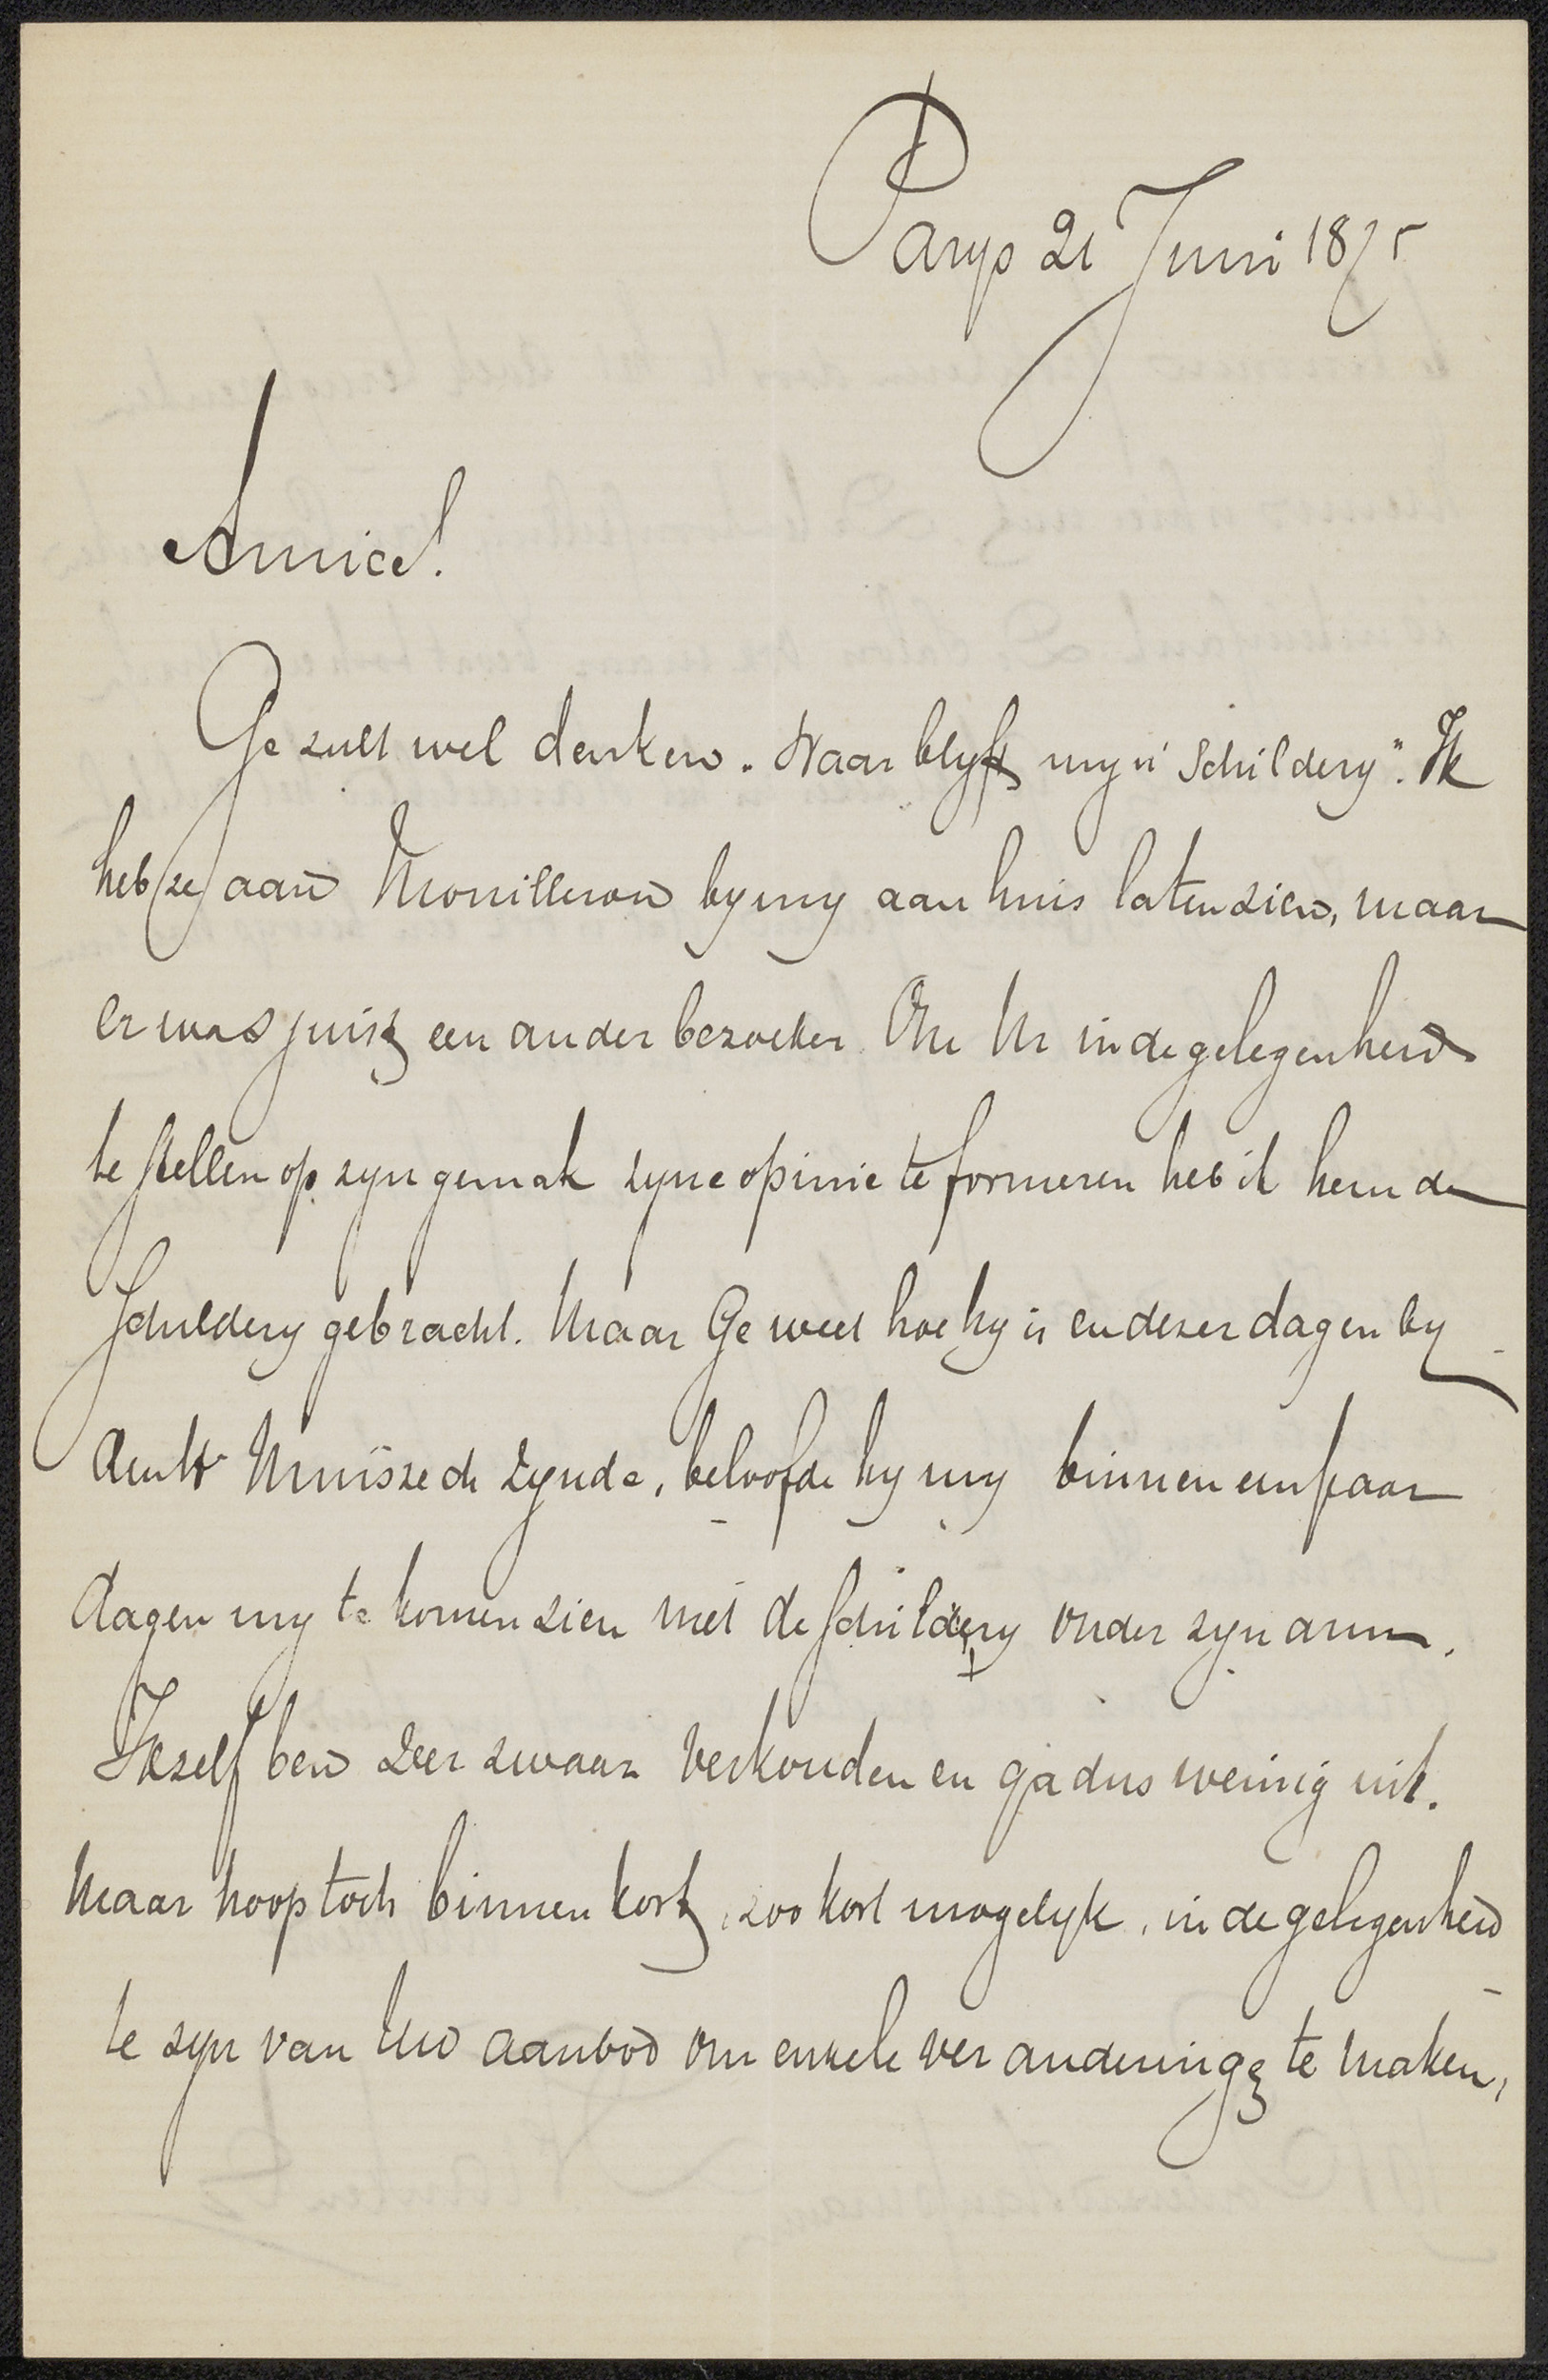 Parys 21 Juni 1875
Amice!
Ge zult wel denken. Waar blyft myn Schildery". Ik
heb ze aan Mouilleron by my aan huis laten zien, maar
er was juist een ander bezoeker. Om M in de gelegenheid
te stellen op zyn gemak zyne opinie te formeren heb ik hem de
schildery gebracht. Maar Ge weet hoe hy is en dezer dagen by
den Hr zynde, beloofde hy my binnen een paar
dagen my te komen zien met de schildery onder zyn arm.
Ikzelf ben zeer zwaar verkouden en ga dus weinig uit.
Maar hoop toch binnen kort, zoo kort mogelyk, in de gelegenheid
te zyn van Uw aanbod om enkele veranderingen te maken,